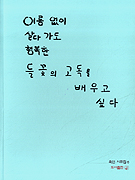 이름 없이
살다 가도
행복한
들꽃의 고독을
배우고
싶다